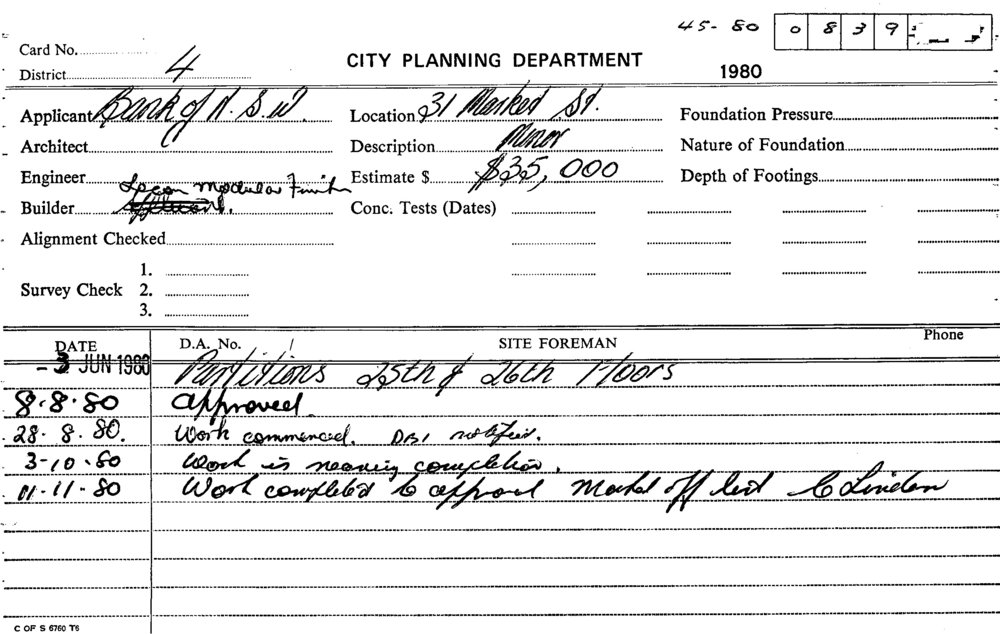 45-80 0839
Card No.
District 4
CITY PLANNING DEPARTMENT
1980
Applicant Bank of N.S.W. Location 31 Market St. Foundation Pressure
Architect Description Minor Nature of Foundation
Engineer Estimate $ $35,000 Depth of Footings
Logan Modular
Builder Conc. Tests (Dates)
Alignment Checked
1.
Survey Check 2.
3.
DATE D.A. No. SITE FOREMAN Phone
-3 JUN 1980 Partitions 25th & 26th Floors
8.8.80 Approved.
28.8.80. Work commenced. DBI notified.
3-10.80 Work is nearing completion.
11-11-80 Work completed to approval Marked off list C Linden
C OF S 6760 T6